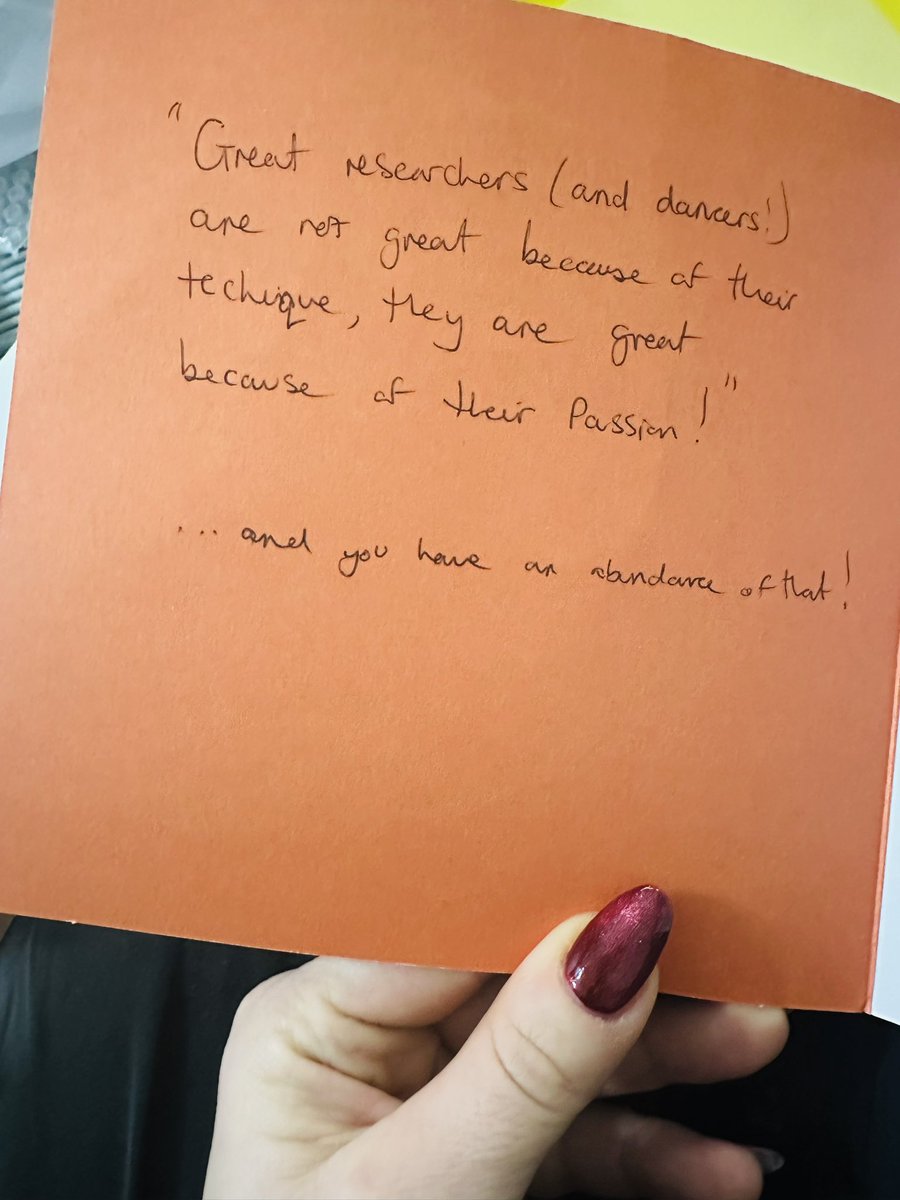 "Great researchers (and dancers!)
are not great because of their
techique, they are great
because of their Passion!"
... and you have an abundance of that!